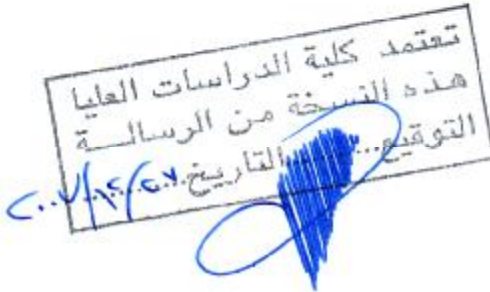 تعتمد كلية الدراسات العليا
هذه النسخة من الرسالــة
التوقيع........التاريخ ٢٠٠٧/١٢/٢٧